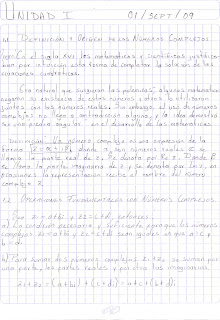 UNIDAD I 01/SEPT/09
1.1 DEFINICIÓN Y ORIGEN DE LOS NÚMEROS COMPLEJOS
En el siglo XVII los matemáticos y científicos
por el tema de completar la solución de las
ecuaciones cuadráticas.
Era natural que surgieran las polémicas, algunos matemáticos
negaron la existencia de estos números y otros lo utilizaron
junto con los números reales. Sin embargo, el uso de números
complejos no llegó a contradicción alguna, y la idea demostró
ser una piedra angular en el desarrollo de las matemáticas.
Un número complejo es una expresión de la
forma z = a + bi, donde a, b son números reales
a es la parte real de z. Se denota por Re z. Donde b
es la parte imaginaria de z y se denota por Im z,
la representación recibe el nombre del número
complejo z.
1.2 OPERACIONES FUNDAMENTALES CON NÚMEROS COMPLEJOS
z1 = a + bi y z2 = c + di, entonces
a) La condición necesaria y suficiente para que los números
complejos a + bi y c + di sean iguales es que a = c y
b = d.
b) Para sumar dos números complejos z1 + z2 se suman por
una parte, las partes reales y por otra las imaginarias.
z1 + z2 = (a + bi) + (c + di) = a + c + (b + d)i